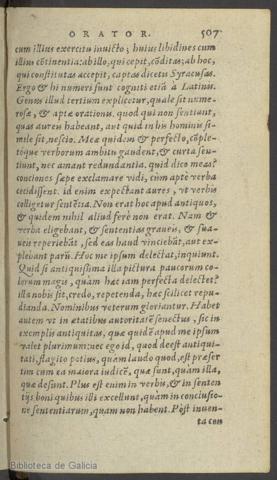 ORATOR. 507
cum illius exercitu inuicto; huius libidines cum
illius cōtinentia: ab illo, qui cepit, cōditas; ab hoc,
qui constitutas accepit, captas dicetis Syracusas.
Ergo & hi numeri sunt cogniti etiā à Latinis.
Genus illud tertium explicetur, quale sit nume-
rosæ, & aptæ orationis. quod qui non sentiunt,
quas aures habeant, aut quid in his hominis si-
mile sit, nescio. Meæ quidem & perfecto, cōple-
toque verborum ambitu gaudent, & curta sen-
tiunt, nec amant redundantia. quid dico meas?
conciones sæpe exclamare vidi, cùm aptè verba
cecidissent. id enim expectant aures, vt verbis
colligetur sentētia. Non erat hoc apud antiquos,
& quidem nihil aliud ferè non erat. Nam &
verba eligebant, & sententias graueis, & sua-
ueis reperiebāt, sed eas haud vinciebāt, aut ex-
plebant parū. Hoc me ipsum delectat, inquiunt.
Quid si antiquissima illa pictura paucorum co-
lorum magis, quàm hæc iam perfecta delectet?
illa nobis sit, credo, repetenda, hæc scilicet repu-
dianda. Nominibus veterum gloriantur. Habet
autem vt in ætatibus autoritatē senectus, sic in
exemplis antiquitas, quæ quidē apud me ipsum
valet plurimum: nec ego id, quod deest antiqui-
tati, flagito potius, quàm laudo quod est: præser
tim cùm ea maiora iudicē, quæ sunt, quàm illa,
quæ desunt. Plus est enim in verbis, & in senten
tijs boni quibus illi excellunt, quàm in conclusio-
ne sententiarum, quam non habent. Pòst inuen-
ta con
Biblioteca de Galicia